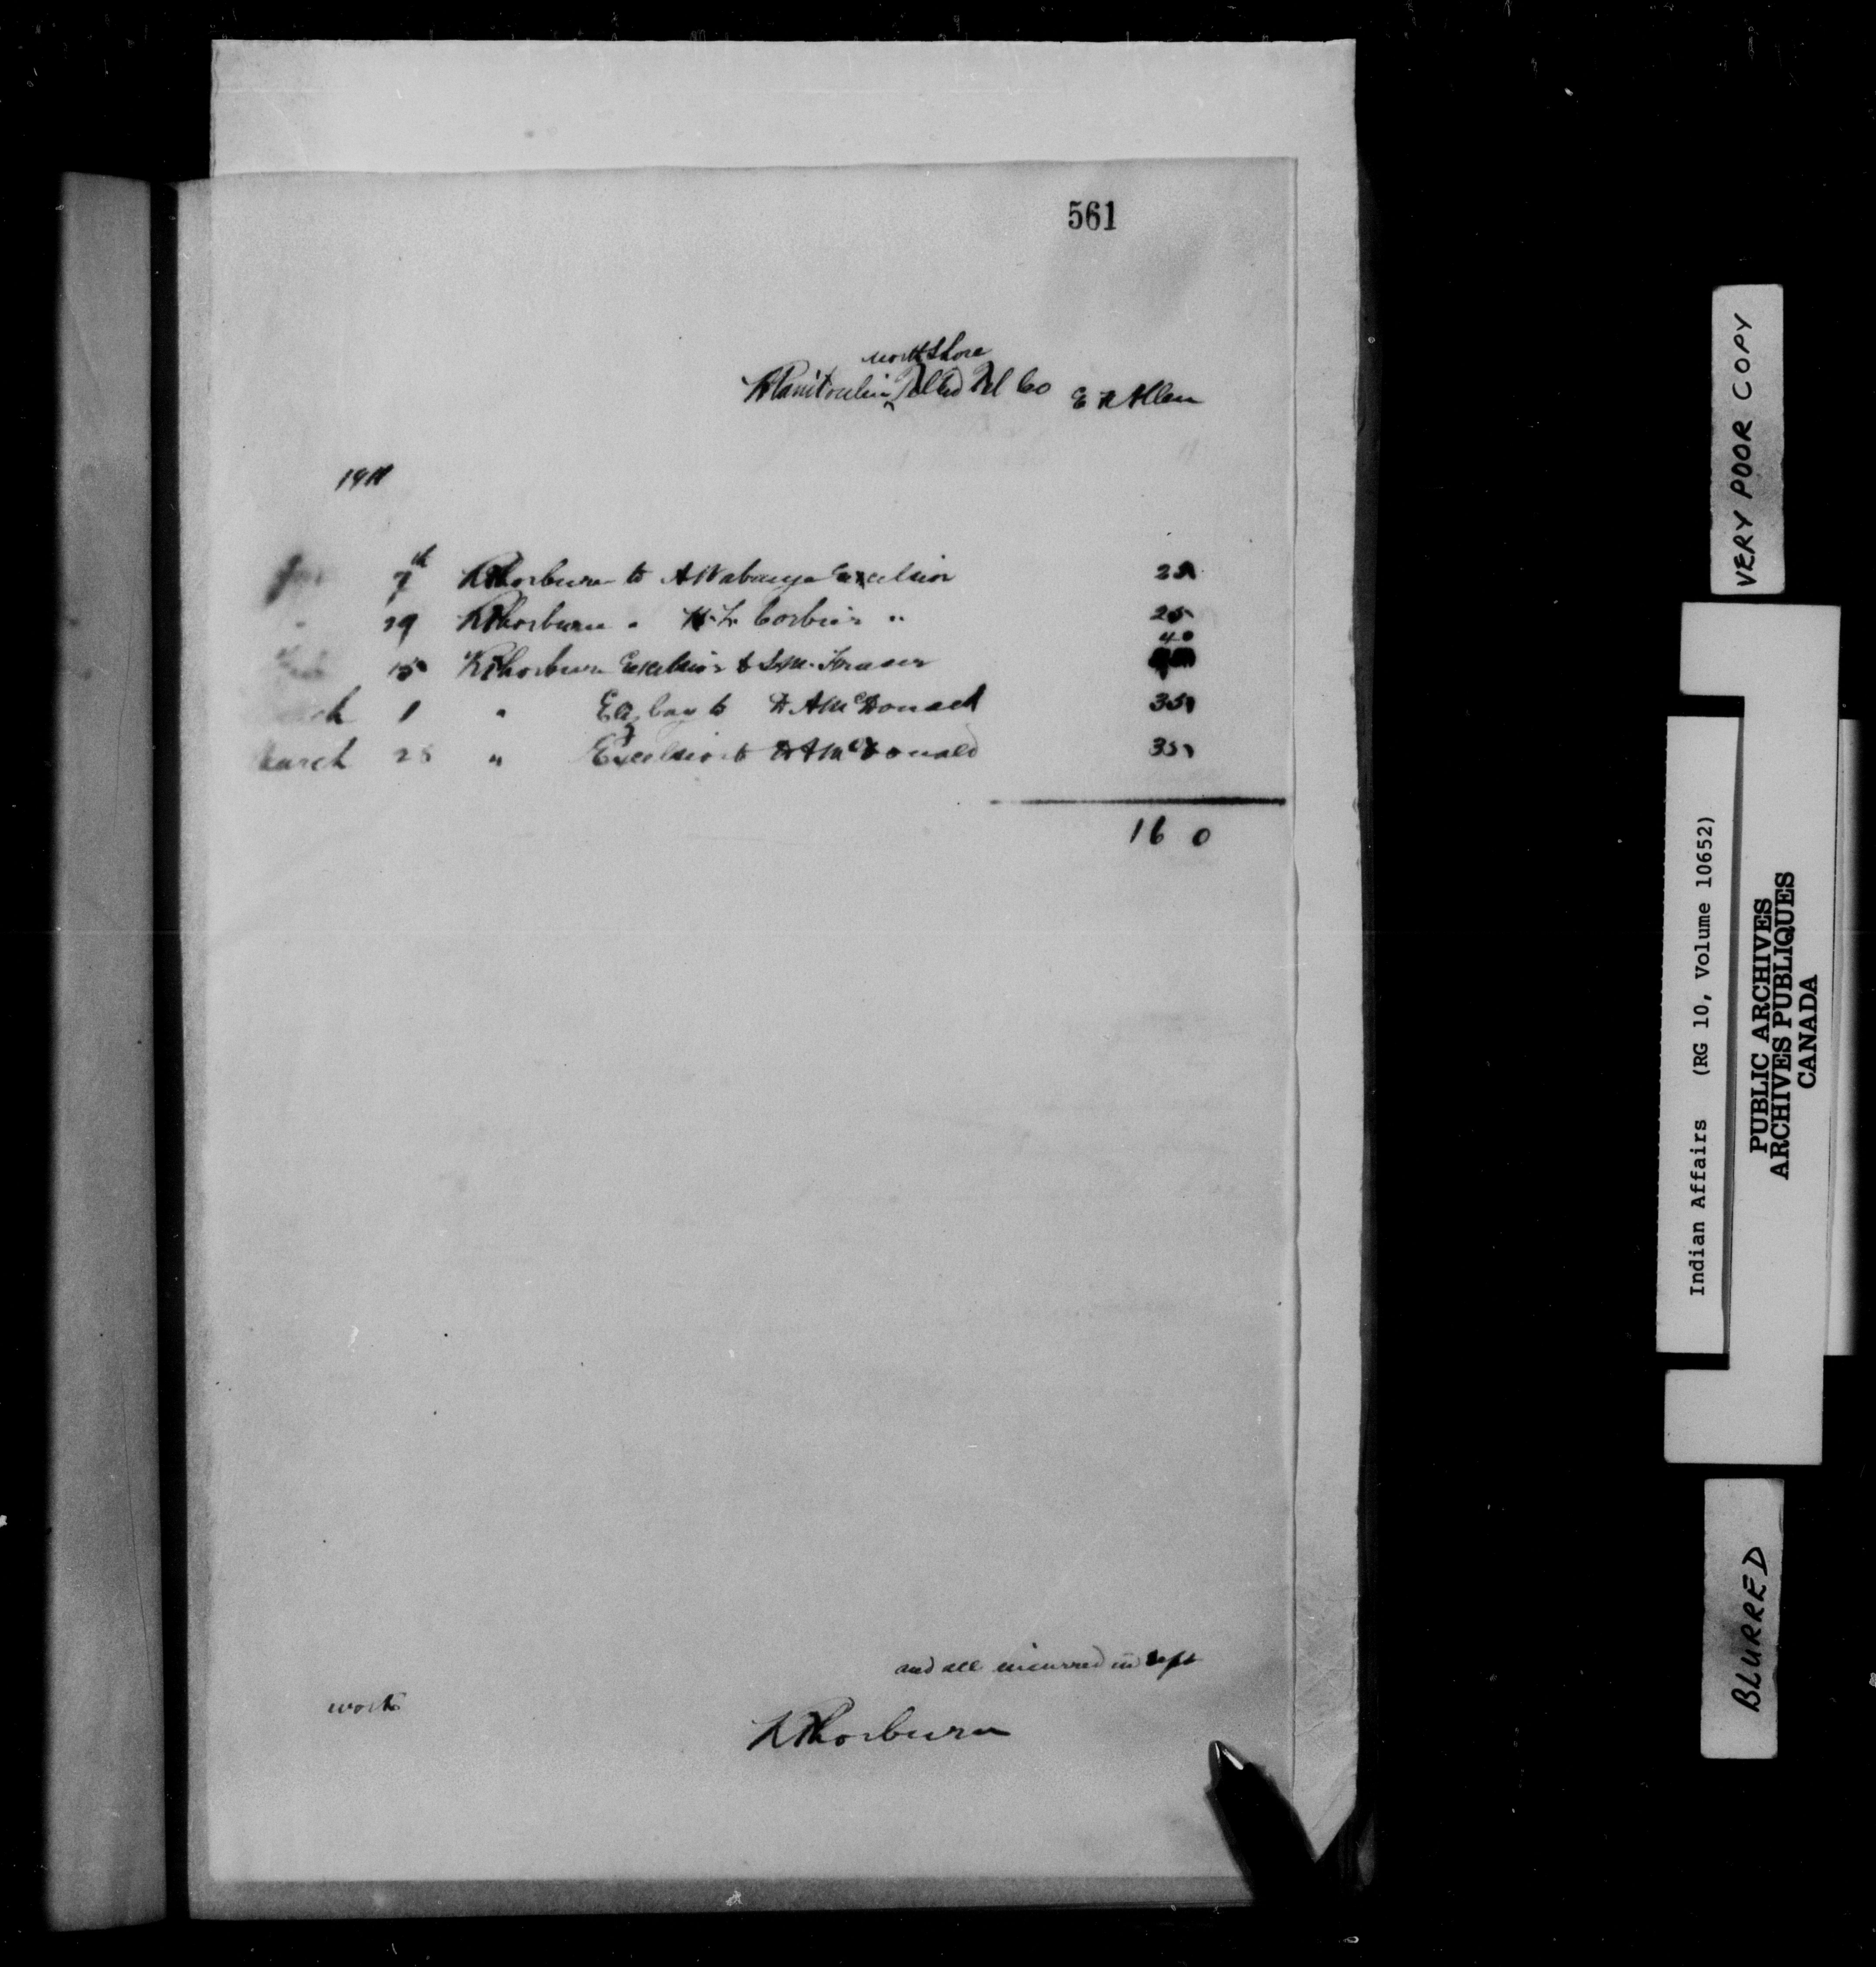 561
North Shore
Manitoulin Tel Co E R Allen
1911
7th RThorburn to A Wabauge Excelsior 25
29 RThorburn " Corbiere " 25
40
15 RThorburn Excelsior to Fraser
1 " to D A McDonald 35
March 28 " Excelsior to D A McDonald 35
16 0
and all incurred in
work
RThorburn
VERY POOR COPY
Indian Affairs (RG 10, Volume 10652)
PUBLIC ARCHIVES
ARCHIVES PUBLIQUES
CANADA
BLURRED